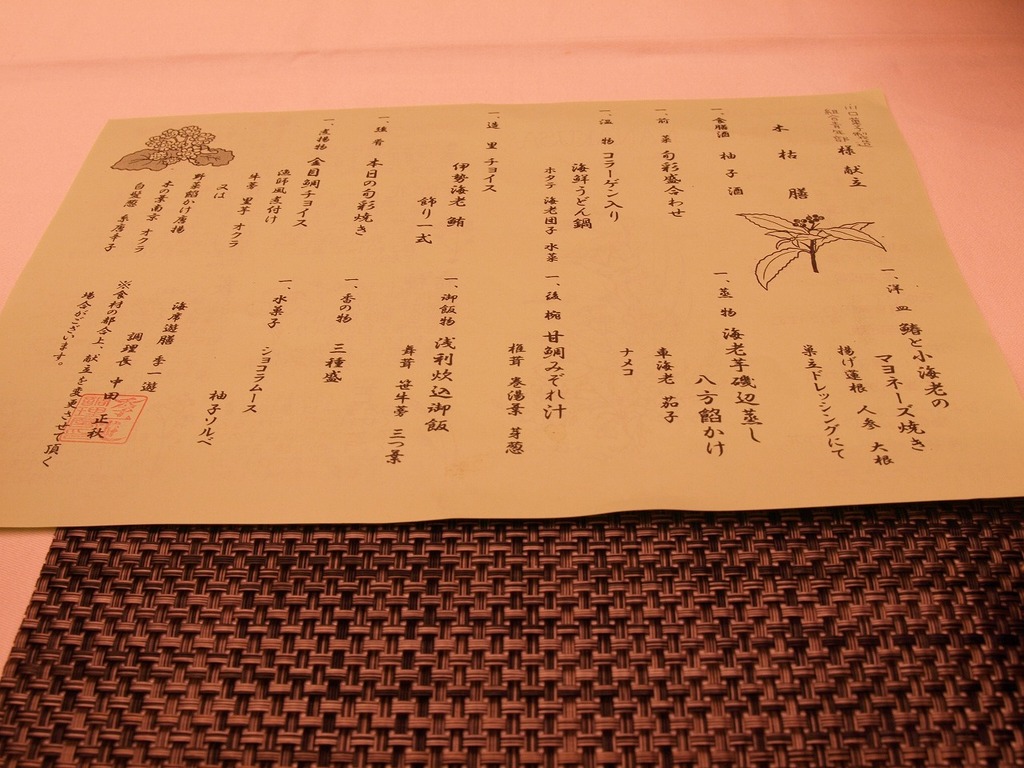 様 献立
木枯膳
一、食膳酒 柚子酒
一、前菜 旬彩盛合わせ
一、温物 コラーゲン入り
海鮮うどん鍋
ホタテ 海老団子 水菜
一、造里 チョイス
伊勢海老 鮪
飾り一式
一、焼肴 本日の旬彩焼き
一、煮揚物 金目鯛チョイス
漁師風煮付け
牛蒡 里芋 オクラ
又は
野菜餡かけ唐揚
木の葉南京 オクラ
白髪葱 糸唐辛子
一、洋皿 鰆と小海老の
マヨネーズ焼き
揚げ蓮根 人参 大根
巣立ドレッシングにて
一、蒸物 海老芋磯辺蒸し
八方餡かけ
車海老 茄子
ナメコ
一、後椀 甘鯛みぞれ汁
椎茸 巻湯葉 芽葱
一、御飯物 浅利炊込御飯
舞茸 笹牛蒡 三つ葉
一、香の物 三種盛
一、水菓子 ショコラムース
柚子ソルベ
海岸遊膳 季一遊
調理長 中田 正秋
※食材の都合上、献立を変更させて頂く
場合がございます。